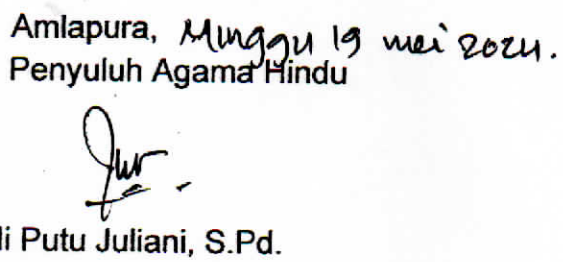 Amlapura, Minggu 19 mei 2024.
Penyuluh Agama Hindu
i Putu Juliani, S.Pd.